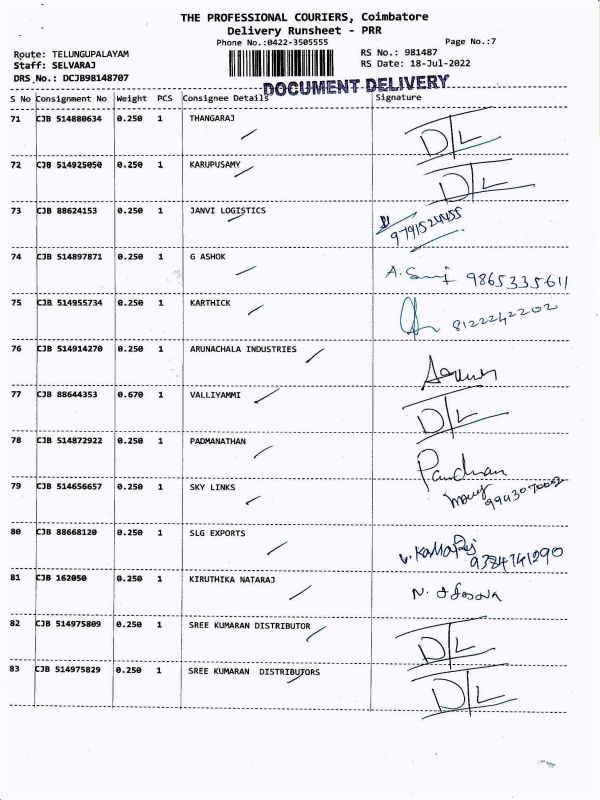 THE PROFESSIONAL COURIERS, Coimbatore
Delivery Runsheet - PRR
Phone No.:0422-3505555
Page No.:7
Route: TELUNGUPALAYAM
RS No.: 981487
Staff: SELVARAJ
RS Date: 18-Jul-2022
DRS No.: DCJB98148707
DOCUMENT DELIVERY
S No Consignment No Weight PCS Consignee Details Signature
71 CJB 514880634 0.250 1 THANGARAJ D/L
72 CJB 514925050 0.250 1 KARUPUSAMY D/L
73 CJB 88624153 0.250 1 JANVI LOGISTICS
74 CJB 514897871 0.250 1 G ASHOK 9865335611
75 CJB 514955734 0.250 1 KARTHICK 8122242202
76 CJB 514914270 0.250 1 ARUNACHALA INDUSTRIES
77 CJB 88644353 0.670 1 VALLIYAMMI D/L
78 CJB 514872922 0.250 1 PADMANATHAN
79 CJB 514656657 0.250 1 SKY LINKS
80 CJB 88668120 0.250 1 SLG EXPORTS 9384741290
81 CJB 162050 0.250 1 KIRUTHIKA NATARAJ
82 CJB 514975809 0.250 1 SREE KUMARAN DISTRIBUTOR D/L
83 CJB 514975829 0.250 1 SREE KUMARAN DISTRIBUTORS D/L